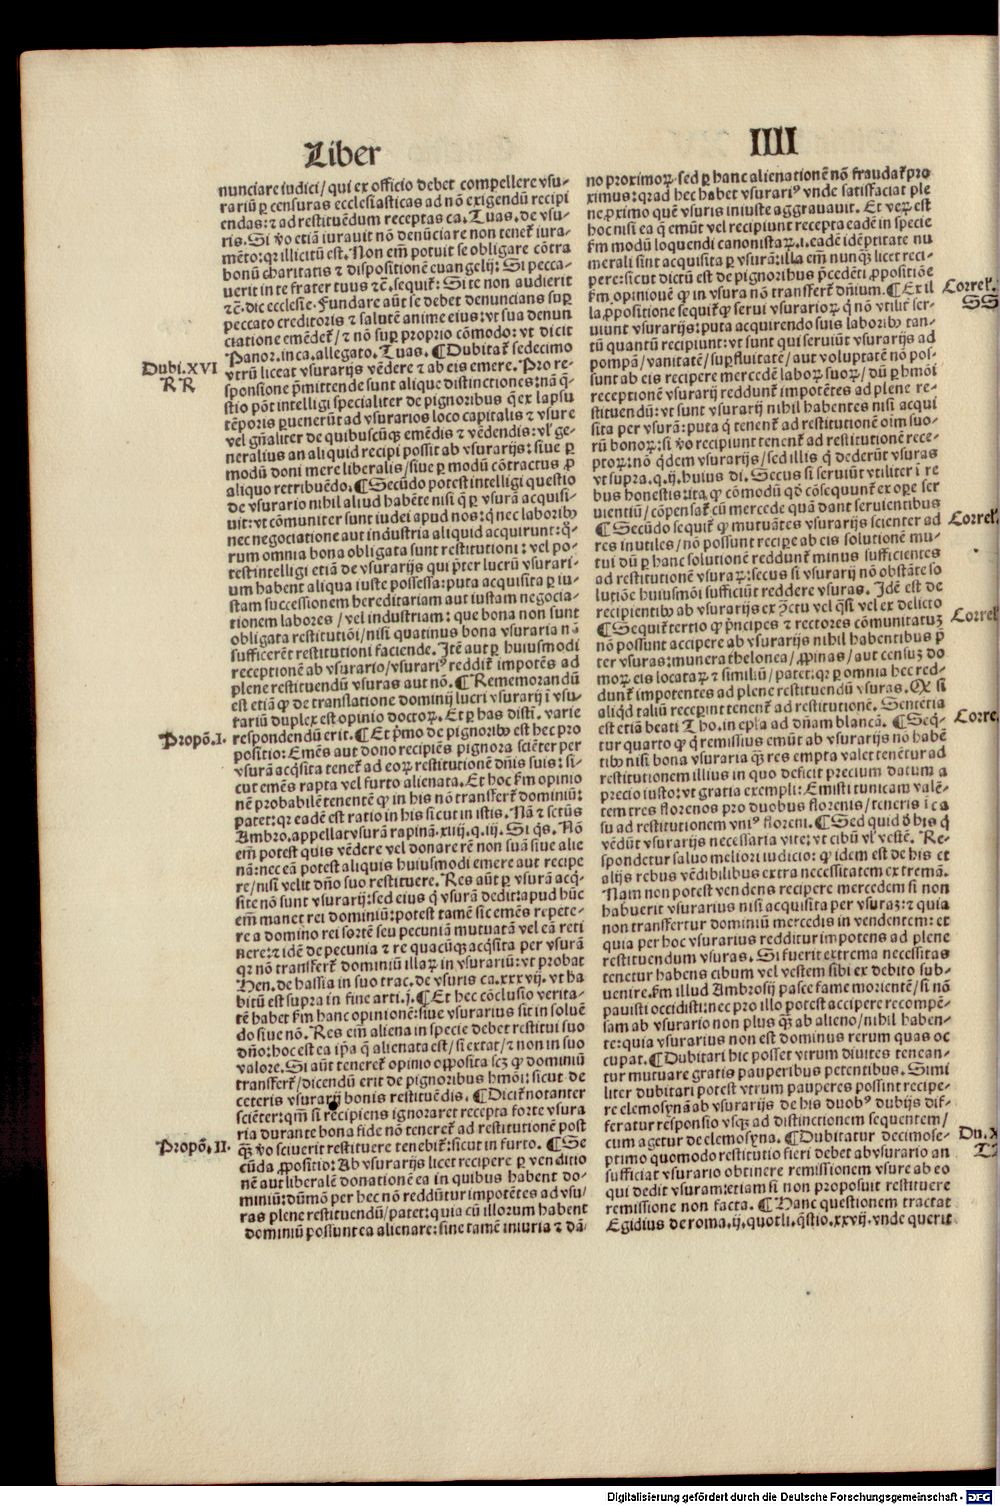 Liber
IIII
nunciare iudici/ qui ex officio debet compellere vsu-
rariū ꝑ censuras ecclesiasticas ad nō exigendū recipi
endas: ⁊ ad restituēdum receptas ca. Tuas. de vsu-
ris. Si v̄o etiā iurauit nō denūciare non teneť iura-
mēto: qꝛ illicitū est. Non em̄ potuit se obligare cōtra
bonū charitatis ⁊ dispositionē euangelij: Si pecca-
uerit in te frater tuus ⁊c̄. sequiť: Si te non audierit
⁊c̄. dic ecclesie. Fundare aūt se debet denuncians suꝑ
peccato creditoris ⁊ salutē anime eius: vt sua denun
ciatione emēdeť/ ⁊ nō suꝑ proprio cōmodo: vt dicit
Panor. in ca. allegato. Tuas. ¶ Dubitať sedecimo
Dubi. XVI
RR
vtrū liceat vsurarijs vēdere ⁊ ab eis emere. Pro re-
sponsione p̄mittende sunt alique distinctiones: nā q̄-
stio pōt intelligi specialiter de pignoribus q̄ ex lapsu
tēporis ꝑuenerūt ad vsurarios loco capitalis ⁊ vsure
vel gn̄aliter de quibuscūqꝫ emēdis ⁊ vēdendis: vľ ge-
neralius an aliquid recipi possit ab vsurarijs: siue ꝑ
modū doni mere liberalis/ siue ꝑ modū cōtractus ꝓ
aliquo retribuēdo. ¶ Secūdo potest intelligi questio
de vsurario nihil aliud habēte nisi q̄ ꝑ vsurā acquisi-
uit: vt cōmuniter sunt iudei apud nos: q̄ nec laboribꝰ
nec negociatione aut industria aliquid acquirunt: q̄-
rum omnia bona obligata sunt restitutioni: vel po-
test intelligi etiā de vsurarijs qui p̄ter lucrū vsurari-
um habent aliqua iuste possessa: puta acquisita ꝑ iu-
stam successionem hereditariam aut iustam negocia-
tionem labores/ vel industriam: que bona non sunt
obligata restitutiōi/ nisi quatinus bona vsuraria nō
sufficerēt restitutioni faciende. Itē aut ꝑ huiusmodi
receptionē ab vsurario/ vsurariꝰ reddiť impotēs ad
plene restituendū vsuras aut nō. ¶ Rememorandū
est etiā ꝙ de translatione dominij lucri vsurarij ī vsu-
rariū duplex est opinio doctoꝝ. Et ꝑ has distī. varie
Propō. I.
respondendū erit. ¶ Et p̄mo de pignoribꝰ est hec pro
positio: Emēs aut dono recipiēs pignora sciēter per
vsurā acq̄sita teneť ad eoꝝ restitutionē dn̄is suis: si-
cut emēs rapta vel furto alienata. Et hoc km̄ opinio
nē probabilē tenentē ꝙ in his nō transferť dominiū:
patet: qꝛ eadē est ratio in his sicut in istis. Nā ⁊ sctūs
Ambro. appellat vsurā rapinā. xiiij. q. iij. Si q̄s. Nō
em̄ potest quis vēdere vel donare rē non suā siue alie
nā: nec eā potest aliquis huiusmodi emere aut recipe
re/ nisi velit dn̄o suo restituere. Res aūt ꝑ vsurā acq̄-
site nō sunt vsurarij: sed eius q̄ vsurā dedit: apud hūc
em̄ manet rei dominiū: potest tamē sic emēs repete-
re a domino rei sortē seu pecuniā mutuatā vel eā reti
nere: ⁊ idē de pecunia ⁊ re quacūqꝫ acq̄sita per vsurā
qꝛ nō transferť dominiū illaꝝ in vsurariū: vt probat
Hen. de hassia in suo trac. de vsuris ca. xxxvij. vt ha
bitū est supra in fine arti. j. ¶ Et hec cōclusio verita-
tē habet km̄ hanc opinionē: siue vsurarius sit in soluē
do siue nō. Res em̄ aliena in specie debet restitui suo
dn̄o: hoc est ea ip̄a q̄ alienata est/ si extat/ ⁊ non in suo
valore. Si aūt tenereť opinio opposita scꝫ ꝙ dominiū
transferť/ dicendū erit de pignoribus hmōi: sicut de
ceteris vsurarij bonis restituēdis. ¶ Diciť notanter
sciēter: qm̄ si recipiens ignoraret recepta forte vsura
ria durante bona fide nō tenereť ad restitutionē post
qꝫ v̄o sciuerit restituere tenebiť: sicut in furto. ¶ Se
Propō. II.
cūda ꝓpositio: Ab vsurarijs licet recipere ꝑ venditio
nē aut liberalē donationē ea in quibus habent do-
miniū: dūmō per hec nō reddūtur impotētes ad vsu/
ras plene restituendū/ patet: quia cū illorum habent
dominiū possunt ea alienare: sine tamē iniuria ⁊ dā-
no proximoꝝ. sed ꝑ hanc alienationē nō fraudať pro
ximus: qꝛ ad hec habet vsurariꝰ vnde satisfaciat ple
ne ꝓximo quē vsuris iniuste aggrauauit. Et veꝝ est
hoc nisi ea q̄ emūt vel recipiunt recepta eadē in specie
km̄ modū loquendi canonistaꝝ. i. eadē idēptitate nu
merali sint acquisita ꝑ vsurā: illa em̄ nunqꝫ licet reci-
pere: sicut dictū est de pignoribus p̄cedēti ꝓpositiōe
km̄ opinionē ꝙ in vsura nō transferť dn̄ium. ¶ Ex il
Correľ.
SS
la ꝓpositione sequiť ꝙ serui vsurarioꝝ q̄ nō vtiliť ser-
uiunt vsurarijs: puta acquirendo suis laboribꝰ tan-
tū quantū recipiunt: vt sunt qui seruiūt vsurarijs ad
pompā/ vanitatē/ suꝑfluitatē/ aut voluptatē nō pos-
sunt ab eis recipere mercedē laboꝝ suoꝝ/ dū ꝑ hmōi
receptionē vsurarij redduť impotētes ad plene re-
stituendū: vt sunt vsurarij nihil habentes nisi acqui
sita per vsurā: puta q̄ teneť ad restitutionē oim̄ suo-
rū bonoꝝ: si v̄o recipiunt teneť ad restitutionē rece-
ptoꝝ: nō q̄dem vsurarijs/ sed illis q̄ dederūt vsuras
vt supra. q. ij. huius di. Secus si seruiūt vtiliter ī re
bus honestis: ita ꝙ cōmodū qd̄ cōsequunť ex oꝑe ser
uientiū/ cōpensať cū mercede quā dant seruientibus
¶ Secūdo sequiť ꝙ mutuātes vsurarijs scienter ad
Correľ.
res inutiles/ nō possunt recipe ab eis solutionē mu-
tui dū ꝑ hanc solutionē redduť minus sufficientes
ad restitutionē vsuraꝝ: secus si vsurarij nō obstāte so
lutiōe huiusmōi sufficiūt reddere vsuras. Idē est de
recipientibꝰ ab vsurarijs ex p̄ctu vel q̄si vel ex delicto
¶ Sequiť tertio ꝙ p̄ncipes ⁊ rectores cōmunitatuꝫ
Correľ
nō possunt accipere ab vsurarijs nihil habentibus p̄
ter vsuras: munera thelonea/ ꝓpinas/ aut censuꝫ do
moꝝ eis locataꝝ ⁊ similiū/ patet: qꝛ ꝑ omnia hec red-
dunť impotentes ad plene restituendū vsuras. Qꝛ si
aliq̄d taliū receꝑint teneť ad restitutionē. Sentētia
est etiā beati Tho. in epl̄a ad dn̄am blancā. ¶ Seq̄-
Corre.
tur quarto ꝙ q̄ remissius emūt ab vsurarijs nō habē
tibꝰ nisi bona vsuraria qꝫ res empta valet tenētur ad
restitutionem illius in quo deficit precium datum a
precio iusto: vt gratia exempli: Emisti tunicam valē-
tem tres florenos pro duobus florenis/ teneris ī ca
su ad restitutionem vniꝰ floreni. ¶ Sed quid d̄ his q̄
vēdūt vsurarijs necessaria vite: vt cibū vľ vestē. Re-
spondetur saluo meliori iudicio: ꝙ idem est de his et
alijs rebus vēdibilibus extra necessitatem extremā.
Nam non potest vendens recipere mercedem si non
habuerit vsurarius nisi acquisita per vsuraꝫ: ⁊ quia
non transfertur dominiū mercedis in vendentem: et
quia per hoc vsurarius redditur impotens ad plene
restituendum vsuras. Si fuerit extrema necessitas
tenetur habens cibum vel vestem sibi ex debito sub-
uenire. km̄ illud Ambrosij pasce fame morientē/ si nō
pauisti occidisti: nec pro illo potest accipere recompē-
sam ab vsurario non plus qꝫ ab alieno/ nihil haben-
te: quia vsurarius non est dominus rerum quas oc
cupat. ¶ Dubitari hic posset vtrum diuites tenean-
tur mutuare gratis pauperibus petentibus. Simi
liter dubitari potest vtrum pauperes possint recipe-
re elemosynā ab vsurarijs de his duobꝰ dubijs dif-
feratur responsio vsqꝫ ad distinctionem sequentem/
cum agetur de elemosyna. ¶ Dubitatur decimose-
Du. X
ptimo quomodo restitutio fieri debet ab vsurario an
sufficiat vsurario obtinere remissionem vsure ab eo
qui dedit vsuram: etiam si non proposuit restituere
remissione non facta. ¶ Hanc questionem tractat
Egidius de roma. ij. quotli. q̄stio. xxvij. vnde querit
Digitalisierung gefördert durch die Deutsche Forschungsgemeinschaft - DFG